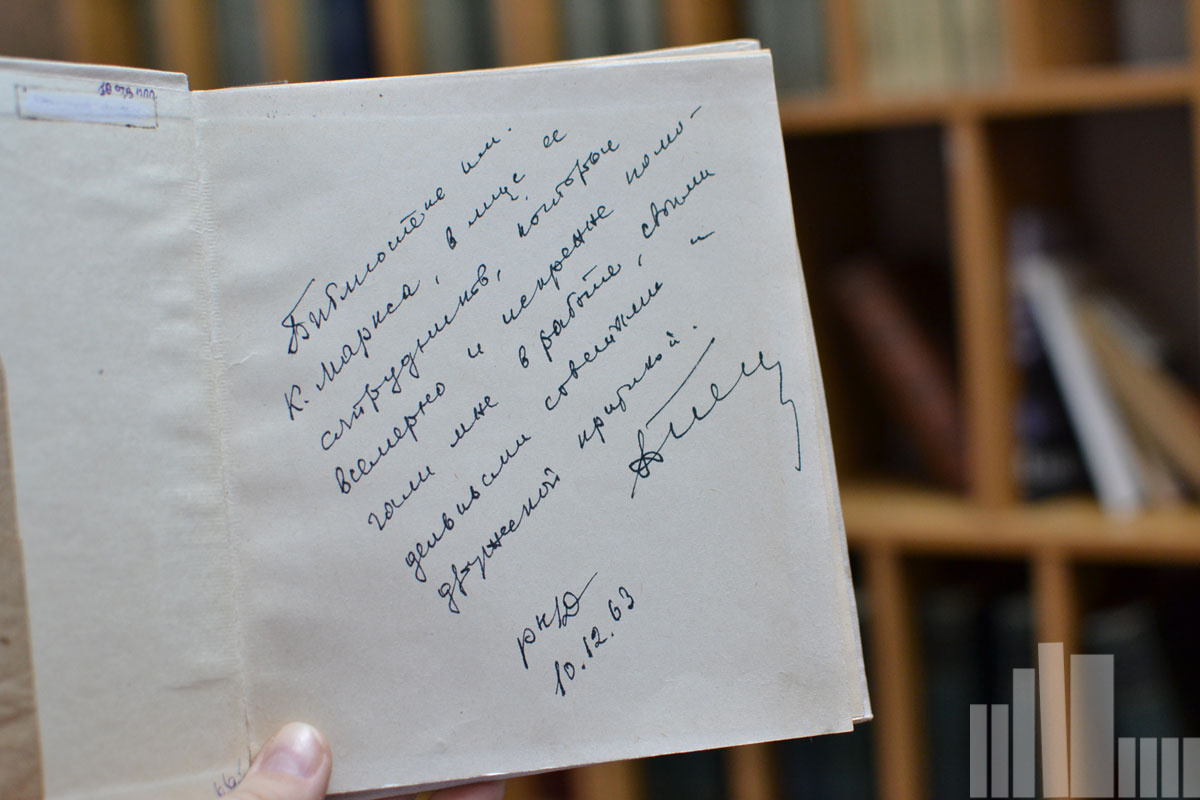 Библиотеке им.
К. Маркса, в лице ее
сотрудников, которые
всемерно и искренне помо-
гали мне в работе, своими
дельными советами и
дружеской критикой.
рнД
10.12.63